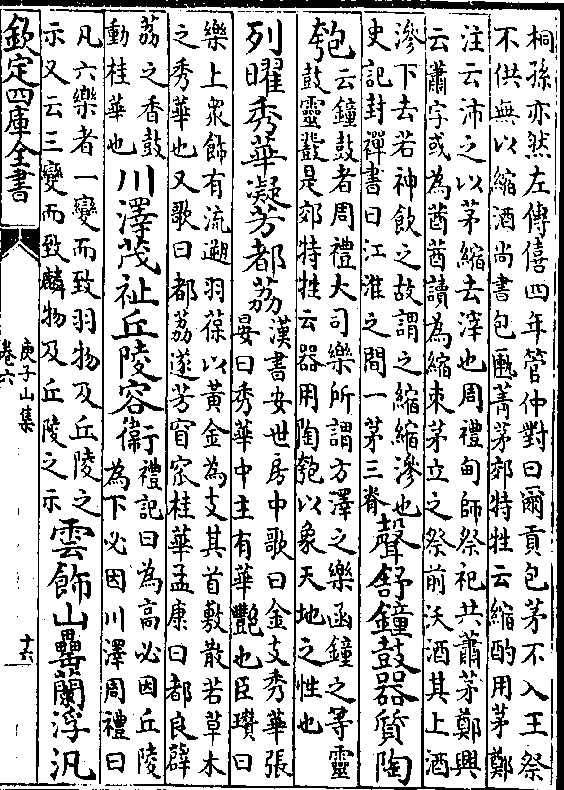 桐孫亦然左傳僖四年管仲對曰爾貢包茅不入王祭
不供無以縮酒尚書包匭菁茅郊特牲云縮酌用茅鄭
注云沛之以茅縮去滓也周禮甸師祭祀共蕭茅鄭興
云蕭字或為莤莤讀為縮束茅立之祭前沃酒其上酒
滲下去若神飲之故謂之縮縮滲也
史記封禪書曰江淮之間一茅三脊
聲舒鐘鼓器質陶
匏
云鐘鼓者周禮大司樂所謂方澤之樂函鐘之等靈
鼓靈鼗是郊特牲云器用陶匏以象天地之性也
列曜秀華凝芳都荔
漢書安世房中歌曰金支秀華張
晏曰秀華中主有華艷也臣瓚曰
樂上衆飾有流遡羽葆以黃金為支其首敷散若草木
之秀華也又歌曰都荔遂芳窅窊桂華孟康曰都良薜
荔之香鼓
動桂華也
川澤茂祉丘陵容衛
禮記曰為高必因丘陵
為下必因川澤周禮曰
凡六樂者一變而致羽物及丘陵之
示又云三變而致麟物及丘陵之示
雲飾山罍蘭浮汎
欽定四庫全書
庾子山集
卷六
十六